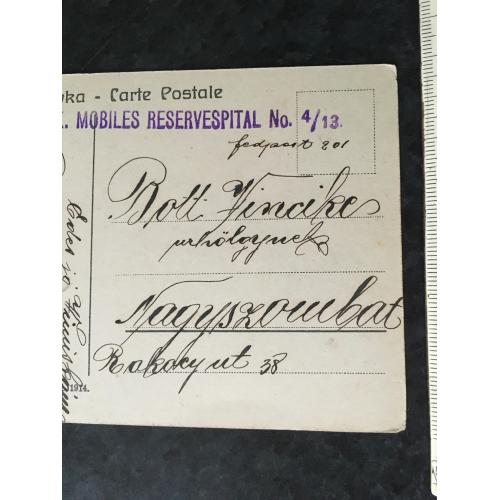 wka - Carte Postale
K. MOBILES RESERVESPITAL No. 4/13.
fedpost 201
Bolt Vincike
urhölgynek
Nagyszombat
Rakocy ut 38
Édes jó
1914.